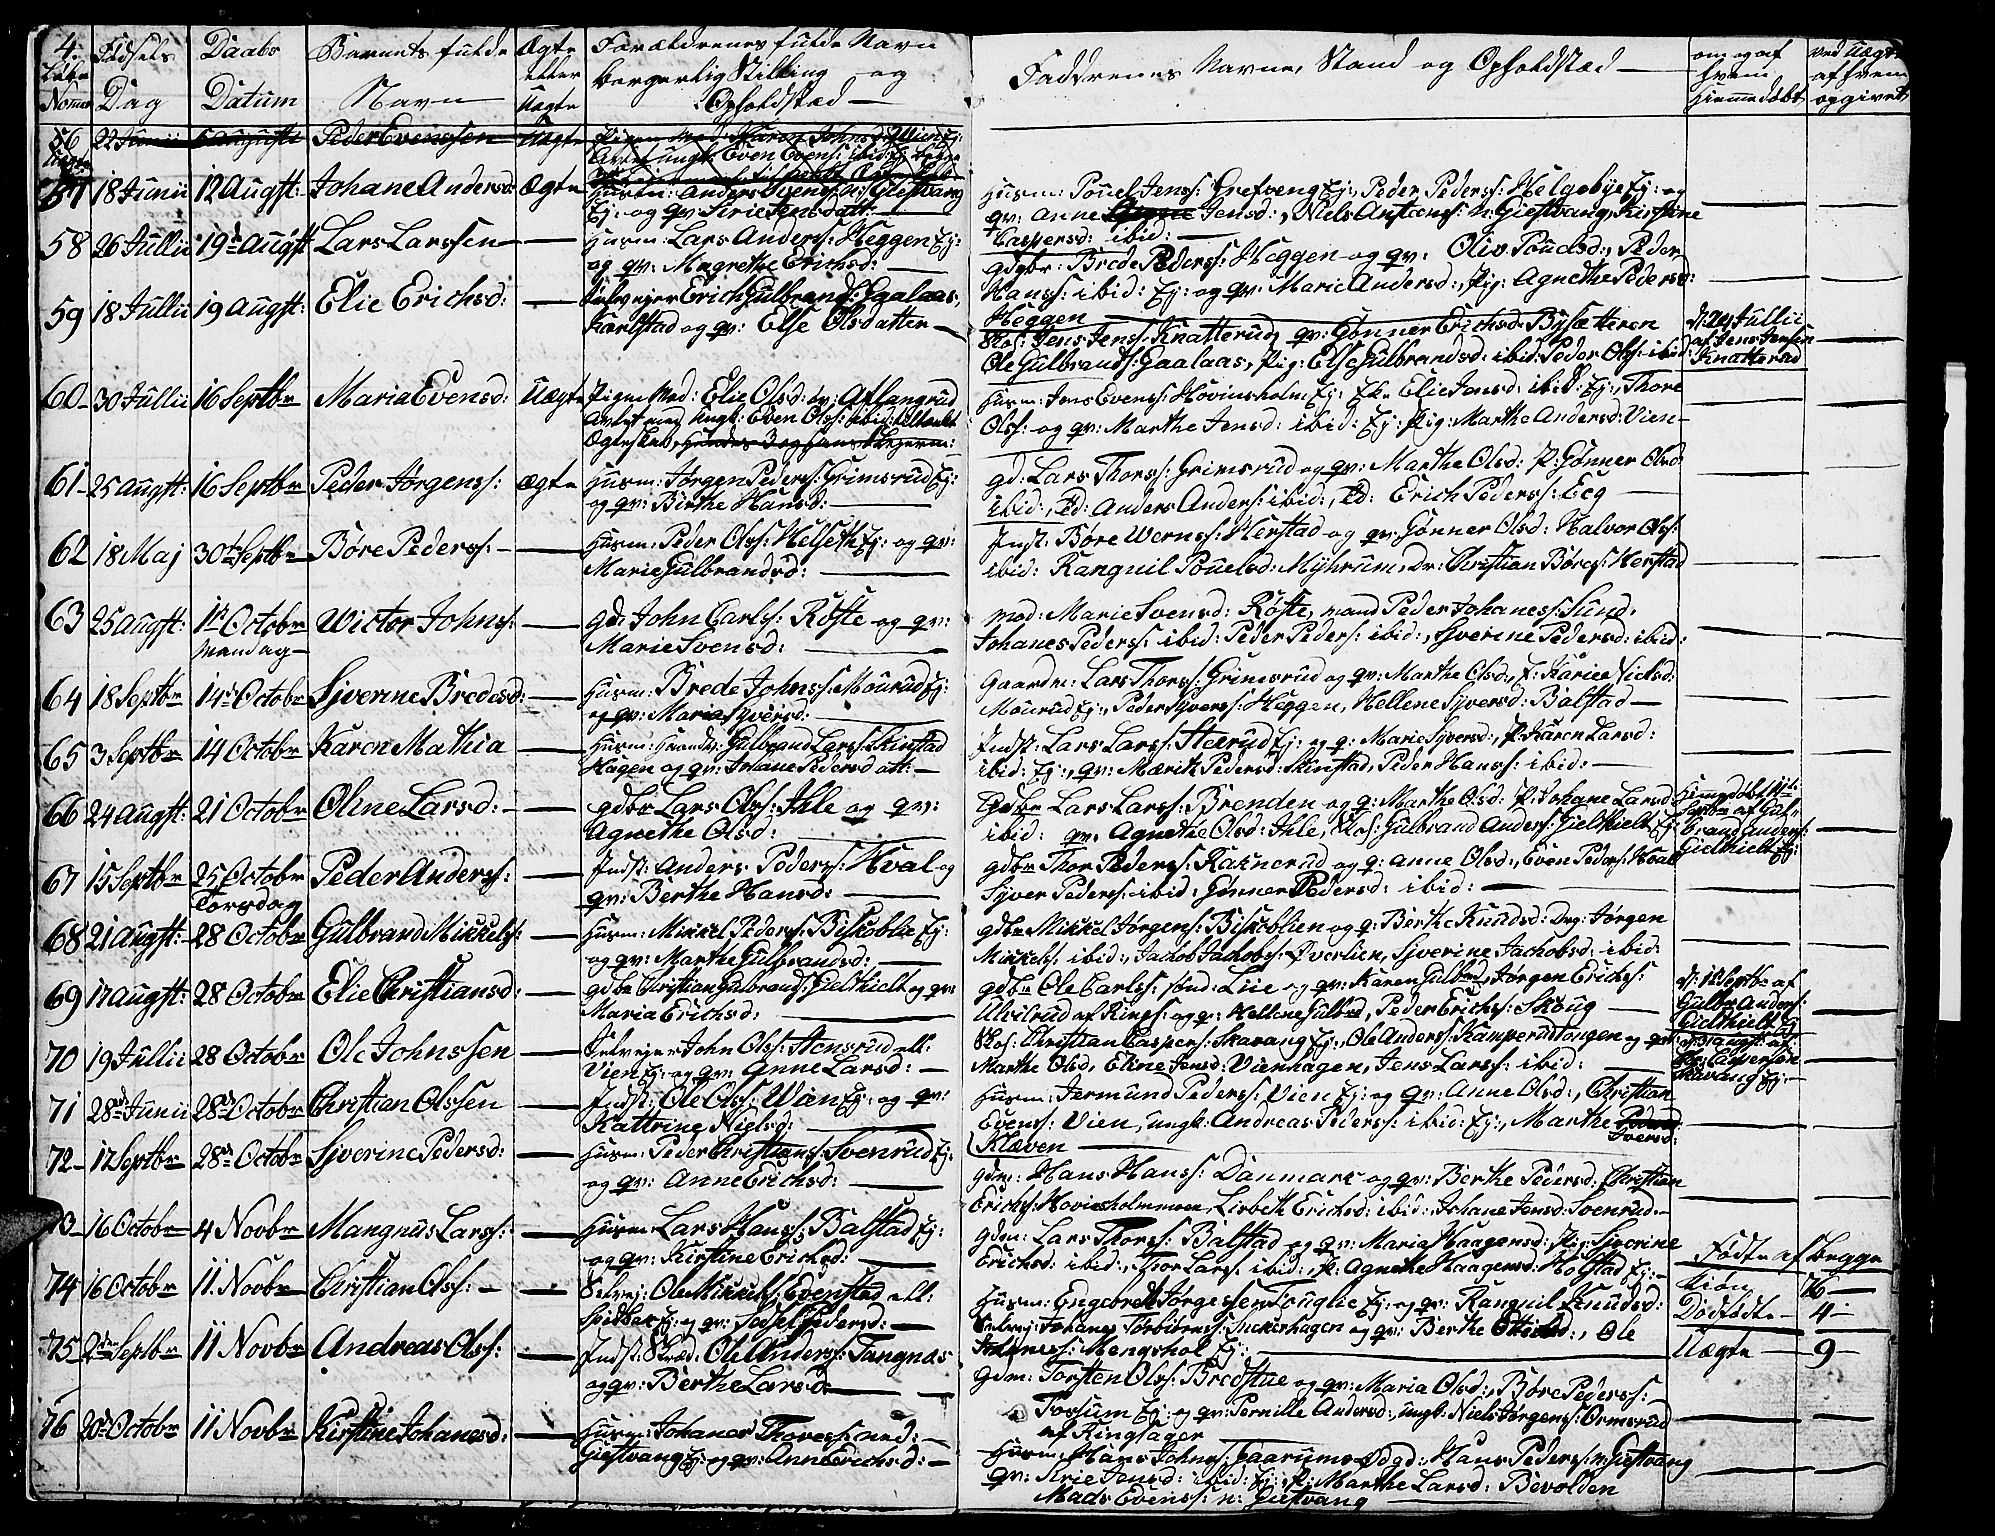 4.
Løbe
Nomer
Fødsels
Dag
Daabs
Datum
Barnets fulde
Navn
Ægte
eller
Uægte
Forældrenes fulde Navn
borgerlig Stilling og
Opholdstæd
Faddrenes Navne, Stand og Opholdstæd
om og af
hvem
hiemmedøbt
ved Uægte
af hvem
opgivet
56 22 Junii 5 Augusti Peder Evenssen Uægte
57 18 Junii 12 Augst: Johane Andersd: Ægte
Husm: Anders Svens: n: Giestvang
Ej: og qv: Sirie Jensdatt:
Husm: Pouel Jens: Grefveng Ej:, Peder Peders: Helgebye Ej: og
qv: Anne Jensd:, Niels Antons: n: Giestvang, Kirstine
Caspersd: ibid:
58 26 Julii 19d Augst Lars Larssen
Husm: Lars Anders: Heggen Ej:
og qv: Magrethe Erichsd:
gdbr: Brede Peders: Heggen og qv: Oliv Pouelsd:, Peder
Hans: ibid: Ej: og qv: Marie Andersd:, Pig: Agnethe Pedersd:
Heggen
59 18 Julii 19 Augst: Elie Erichsd:
Selvejer Erich Gulbrands: Gaalaas,
Karlstad og qv: Else Olsdatter
Skol: Jens Jens: Knatterud, qv: Gønner Erichsd: Bysætteren
Ole Gulbrands: Gaalaas, Pig: Else Gulbrandsd: ibid: Peder Ols: ibid:
d: 24 Julii
af Jens Jensen
Knatterud
60 30 Julii 16 Septbr Maria Evensd: Uægte
Pigen Mad: Elie Olsd: ov: Atlangrud
Avlet med Ungk: Even Ols: ibid: tiltænkt
Ægteskab,
Husm: Jens Evens: Hovinsholm Ej: Elie Jensd: ibid: Ej:, Thore
Ols: og qv: Marthe Jensd: ibid: Ej: Pig: Marthe Andersd: Vien
61 25 Augst: 16 Septbr Peder Jørgens: Ægte
Husm: Jørgen Peders: Grimsrud Ej:
og qv: Birthe Hansd:
gd: Lars Thors: Grimsrud og qv: Marthe Olsd: P: Gønner Olsd
ibid:, Ed: Anders Anders: ibid:, Ed: Erich Peders: Eeg
62 18 Maj 30d Septbr Børe Peders:
Husm: Peder Ols: Helseth Ej: og qv:
Marie Gulbrandsd:
Indst: Børe Werns: Herstad og qv: Gønner Olsd: Halvor Ols:
ibid: Ranguil Pouelsd: Myhrum, Dr: Christian Børes: Herstad
63 25 Augst: 1d Octobr Wictor Johns:
Mandag
gd: John Carls: Røste og qv:
Marie Svensd:
mod: Marie Svensd: Røste, mand Peder Johaness: Sund:
Johanes Peders: ibid: Peder Peders: ibid:, Siverine Pedersd: ibid:
64 18 Septbr 14d Octobr Siverine Bredesd:
Husm: Brede Johns: Mourud Ej:
og qv: Maria Syversd:
Gaardm: Lars Thors: Grimsrud og qv: Marthe Olsd:, P: Karie Nielsd:
Mourud Ej:, Peder Syvers: Heggen, Hellene Syversd: Balstad
65 3 Septbr 14 Octobr Karen Mathia
Husm: Haandv: Gulbrand Lars: Skirstad
Hagen og qv: Johane Pedersdatt:
Indst: Lars Lars: Steerud Ej: og q: Marie Syversd:, P: Karen Larsd:
ibid: Ej:, qv: Mærith Pedersd: Skirstad, Peder Hans: ibid:
66 24 Augst: 21 Octobr Oline Larsd:
gdbr Lars Ols: Ihle og qv:
Agnethe Olsd:
Gdbr Lars Lars: Brenden og q: Marthe Olsd: P: Johane Larsd
ibid: qv: Agnethe Olsd: Ihle, Skol: Gulbrand Anders: Gielthielt Ej:
Septbr af Gul-
brand Anders:
Gielthielt Ej:
67 15 Septbr 25 Octobr Peder Anders:
Torsdag
Indst: Anders Peders: Hval og
qv: Berthe Hansd:
gdbr Thor Peders: Raknerud og q: Anne Olsd:, Even Peders: Hval
Syver Peders: ibid: Gønner Pedersd: ibid:
68 21 Augst: 28 Octobr Gulbrand Mikkels:
Husm: Mikkel Peders: Biskoblie Ej:
og qv: Marthe Gulbrandsd:
gdbr Mikkel Jørgens: Biskoblien og q: Berthe Knudsd: Drg: Jørgen
Mikkels: ibid:, Jachob Jachobs: Øverlien, Siverine Jachobsd: ibid:
69 17 Augst: 28 Octobr Elie Christiansd:
gdbr Christian Gulbrands: Gielthielt og qv:
Maria Erichsd:
gdbr Ole Carls: sønd: Liie og qv: Karen Gulbrd, Jørgen Erichs:
Ulvilrud af Rings: og qv: Hellene Gulbrd, Peder Erichs: Skoug
d: 18 Septbr af
Gulbr Anders:
Gielthielt Ej
70 19 Julii 28 Octobr Ole Johnssen
Selvejer John Ols: Stensrud ell:
Vien Ej: og qv: Anne Larsd:
Skol: Christian Caspers: Skavang Ej:, Ole Anders: Kamperudtongen og qv:
Marthe Olsd, Eline Jensd: Vienhagen, Jens Lars: ibid:
Skavang Ej:
71 28de Junii 28de Octobr Christian Olssen
Indst: Ole Ols: Wien Ej: og qv:
Kattrine Nielsd:
Husm: Jermund Peders: Vien Ej: og qv: Anne Olsd:, Christian
Evens: Vien, ungk: Andreas Peders: ibid: Ej:, Marthe
Iversd:
Klæven
72 17 Septbr 28d Octobr Siverine Pedersd:
Husm: Peder Christians: Svenrud Ej:
og qv: Anne Erichsd:
gdm: Hans Hans: Danmark og qv: Berthe Pedersd: Christian
Erichs: Hovinsholmmoen, Lisbeth Erichsd: ibid: Johane Jensd: Svenrud
73 16 Octobr 4 Novbr Mangnus Lars:
Husm: Lars Hans: Balstad Ej:
og qv: Kirstine Erichsd:
gdm: Lars Thors: Balstad og qv: Maria Haagensd: Pig: Siverine
Erichsd: ibid:, Thor Lars: ibid:, P: Agnethe Haagensd: Holstad Ej:
Fødte af begge
Kiøn 76
Dødfødte 4
Uægte 9
74 16 Octobr 11 Novbr Christian Ols:
Selvej: Ole Mikkels: Evenstad ell:
Ej: og qv: Sedsel Pedersd:
Husm: Engebret Jørgessen Fouglie Ej: og qv: Ranguil Knudsd:
Selvej: Johanes Torbiørns: Snekerhagen og qv: Berthe, Ole
Johanes: Mengshol Ej:
75 2de Septbr 11 Novbr Andreas Ols:
Indst: Skræd: Ole Anders: Tangnæs
og qv: Berthe Larsd:
Gdm: Torsten Ols: Bredstue og qv: Maria Olsd:, Børe Peders:
Tossum Ej: og qv: Pernille Andersd:, ungk: Niels Jørgens: Ormsrud
af Ringsager
76 20d Octobr 11 Novbr Kirstine Johanesd:
Husm: Johanes Thores: ned:
Giestvang Ej: og qv: Anne Erichsd:
Husm: Hans Johns: Hans Peders: n: Giestvang
qv: Sirie Jensd: ibid: Ej:, P: Marthe Larsd: Bevolden
Mads Evens: n: Giestvang